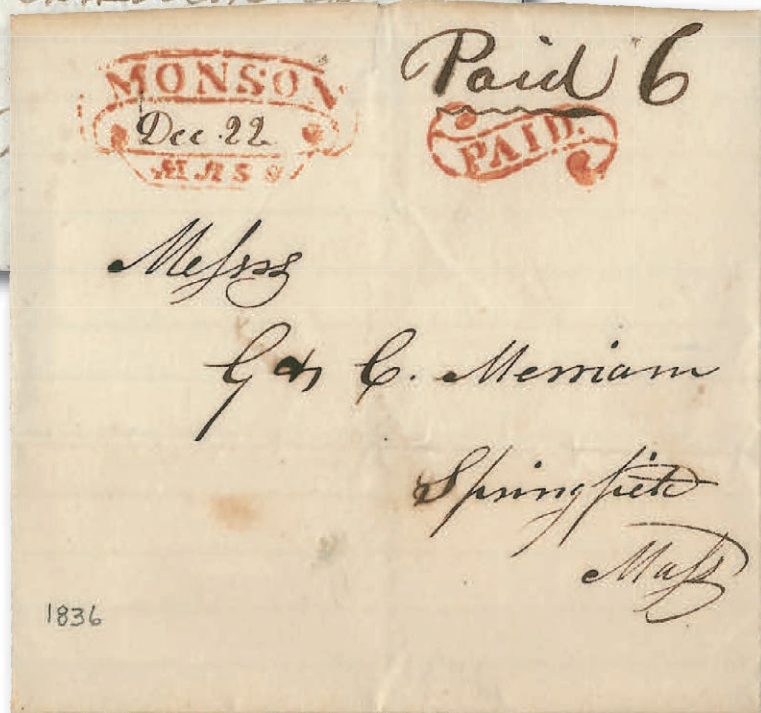 MONSON
Dec 22
MASS
Paid 6
PAID.
Messrs
G & C. Merriam
Springfield
Mass
1836